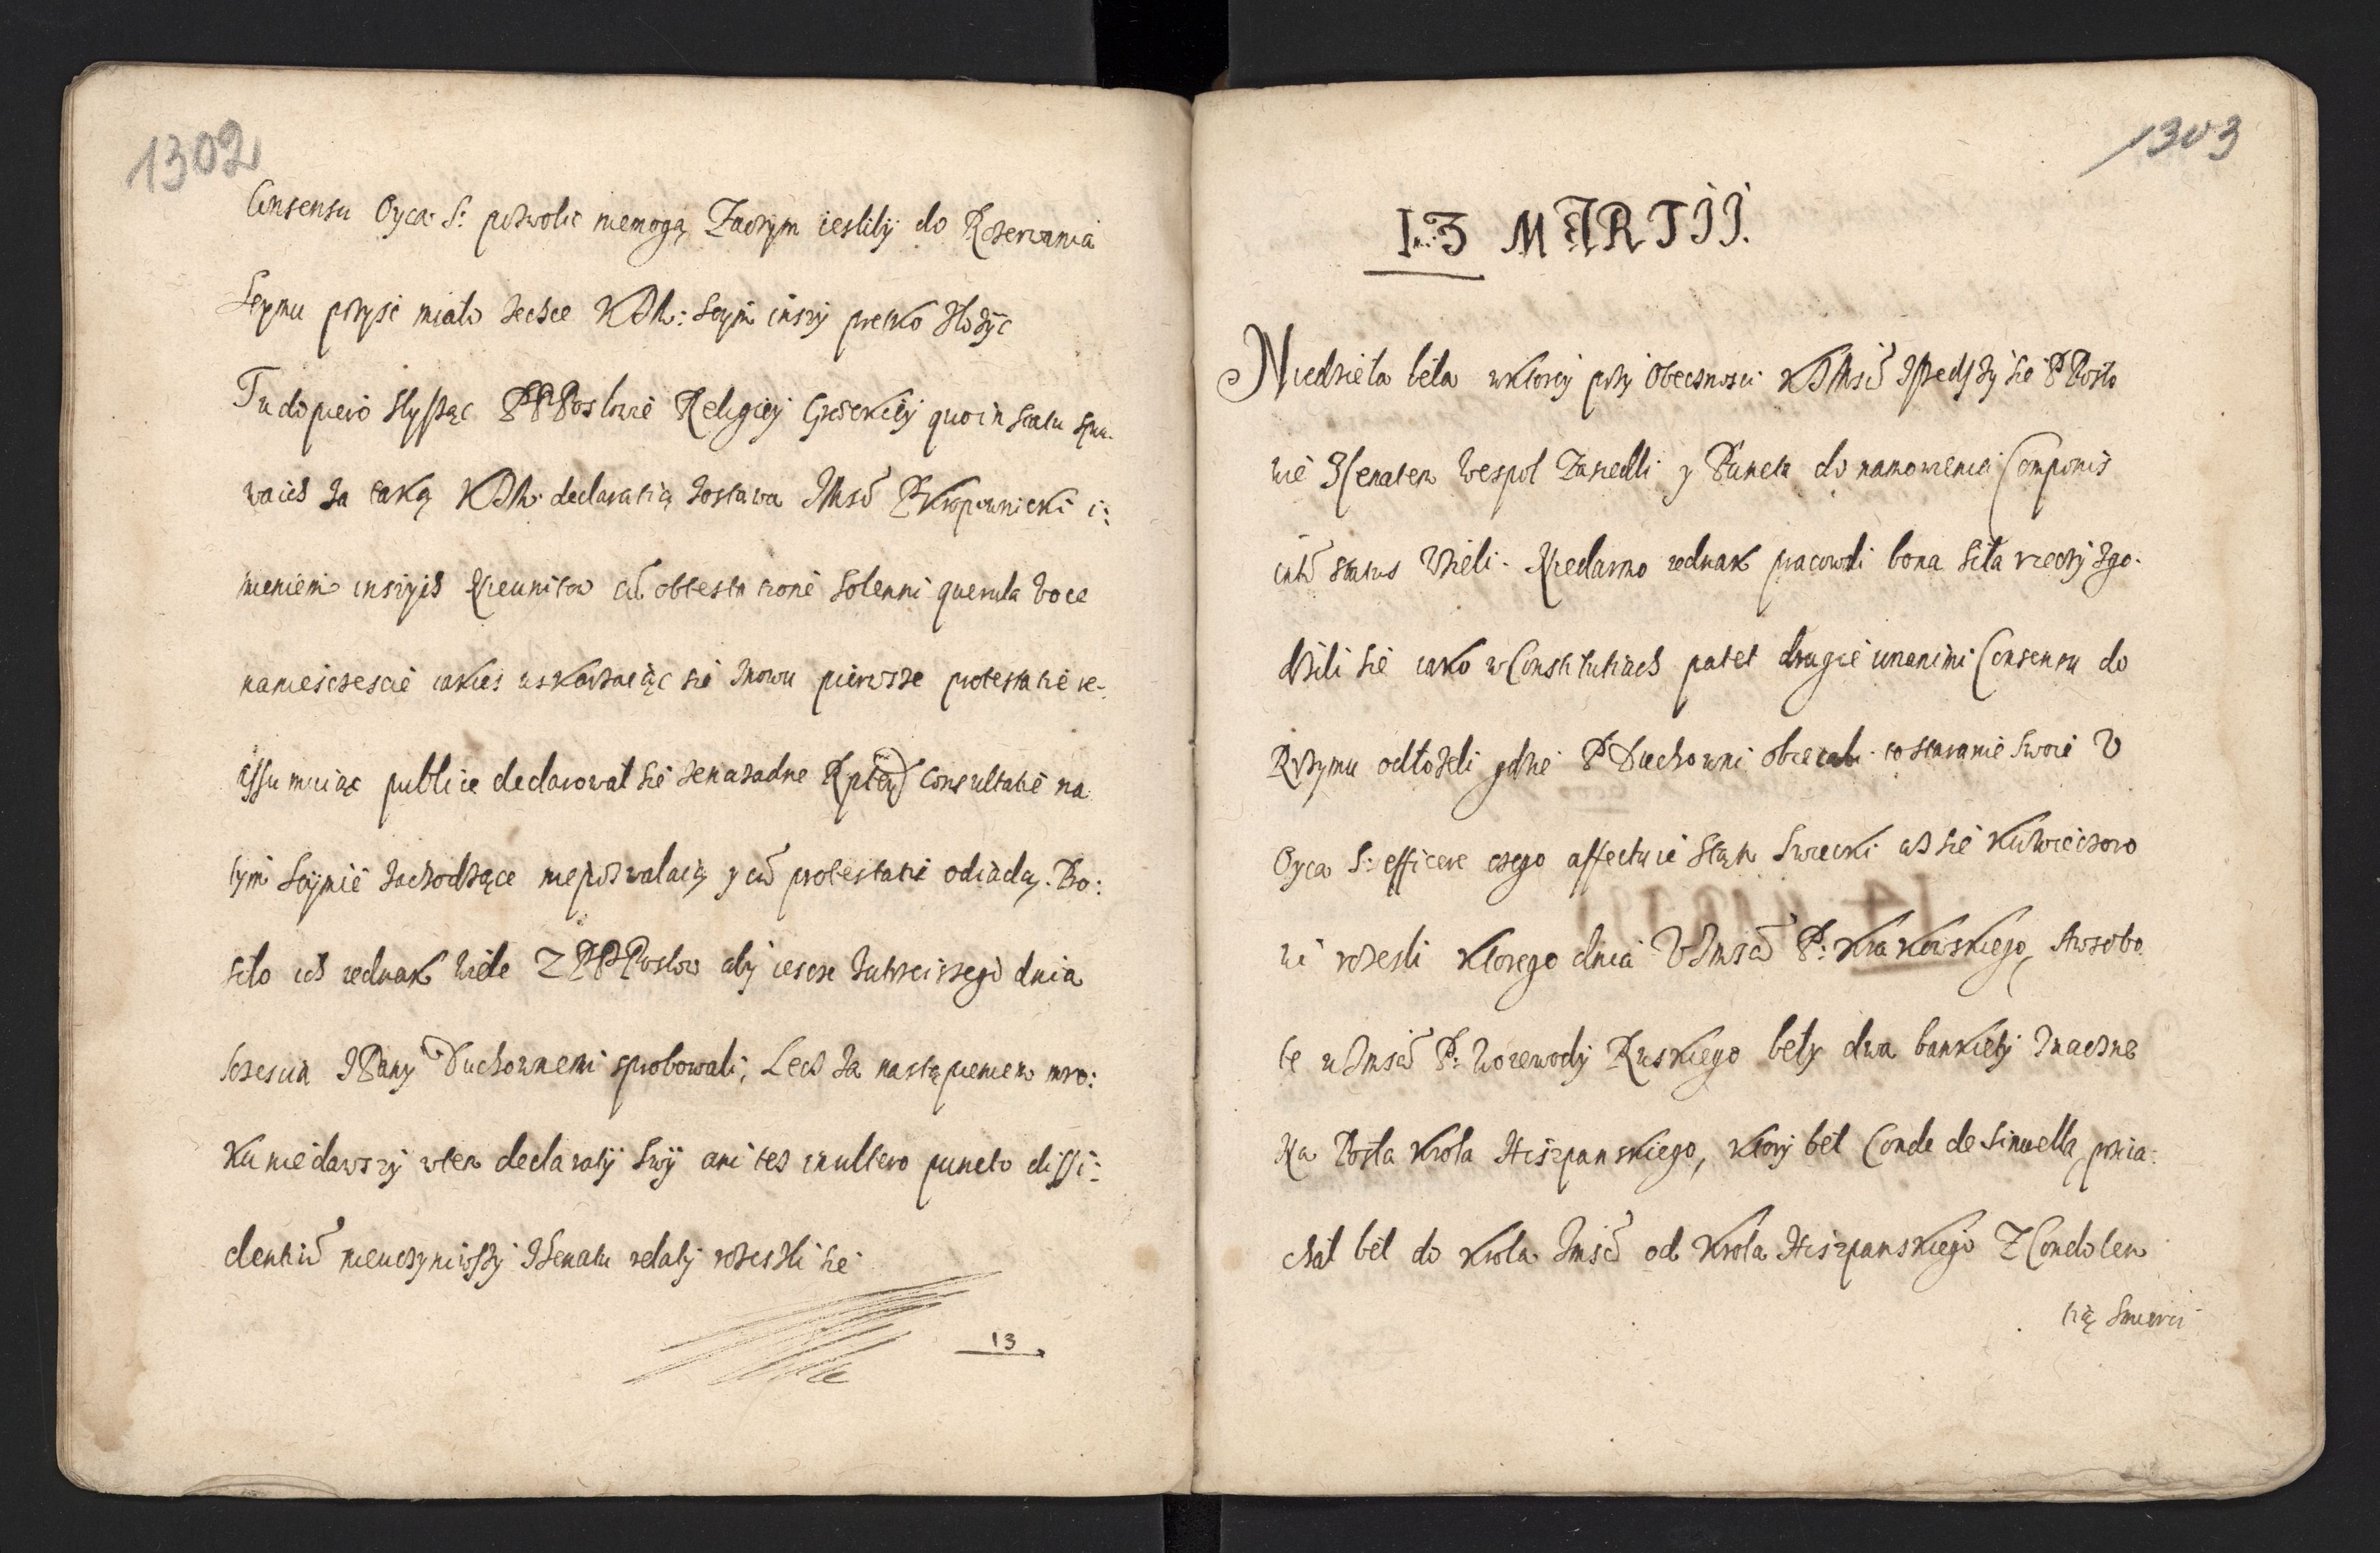 1302
Consensu Oyca S: pozwolic niemogą Zaczym iesliby do Rozerwania
Seymu przysc miało zechce KJM: Seym inszy prętko złożyc
Tu dopiero słysząc PPPosłowie Religiey Greckiey quo in statu spra-
wa ich za taką KJM. declaratią zostawa JMsc P Kropiwnicki i:
mieniem inszych Nieunitow cum obtestatione solenni querula voce
na niesczescie iakies uskarzaiąc sie znowu pierwsze protestatie re-
assumuiąc publice declarował sie ze na zadne Rptey Consultatie na
tym Seymie zachodzące niepozwalaią y cum protestatie odiadą. Pro:
siło ich iednak wiele Z PPPosłow aby iescze zutrzeiszego dnia
sczescia z Pany Duchownemi sprobowali, Lecz za nastąpieniem mro:
ku niedawszy wten declaraty swy ani tez in ultero puncto dissi:
dentium nieuczyniwszy zSenatu relaty rozeszli sie
13
1303
13 MARTII.
Niedziela beła wktorey przy Obecznosci KJMsci zszedszy sie PPosło
wie zSenatem wespoł Zasiedli y Puncta do namowienia Componis
intem status wzieli. Niedarmo iednak pracowali bona siła rzeczy zgo-
dzili sie iako w Constitutiach patet drugie unanimi Consensu do
Rzymu odłożeli gdzie P Duchowni obiecali to staranie swoie V
Oyca S: efficere czego affectuie stan Swiecki asz sie Kuwieczoro
wi rozesli Ktorego dnia V Jmsci P: Krakowskiego, Awsobo
te u Jmsci P: Woiewody Ruskiego beły dwa bankiety znaczne
Na Posła Krola Hiszpanskiego, Ktory beł Conde de Sinuella, przia-
chał beł do Krola Jmsci od Krola Hiszpanskiego Z Condolen
tią Smierci